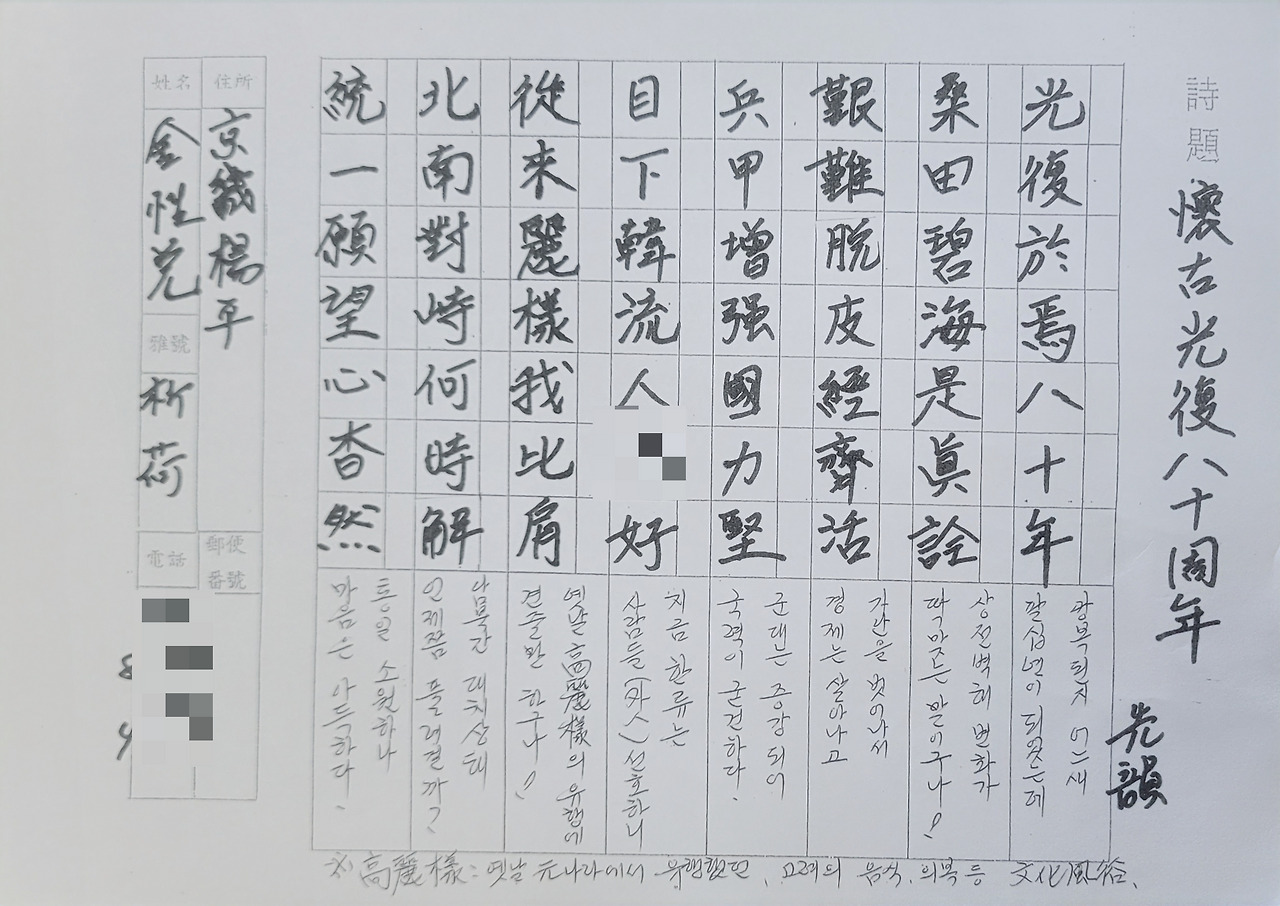 詩題 懷古光復八十周年
先韻
光復於焉八十年
광복된지 어느새
팔십년이 되었는데
桑田碧海是眞詮
상전벽해 변화가
딱맞는 말이구나!
艱難脫皮經齊活
가난을 벗어나서
경제는 살아나고
兵甲增强國力堅
군대는 증강되어
국력이 굳건하다.
目下韓流人好
지금 한류는
사람들(外人) 선호하니
從來麗樣我比肩
옛날 高麗樣의 유행에
견줄만 하구나!
北南對峙何時解
남북간 대치상태
언제쯤 풀려질까?
統一願望心杳然
통일 소원하나
마음은 아득하다.
※ 高麗樣: 옛날 元나라에서 유행했던, 고려의 음식, 의복 등 文化風俗.
住所 京畿楊平
郵便番號
姓名 金性兌
雅號 祈荷
電話